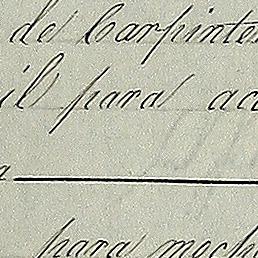 de Carpinte
il para ac
para moch